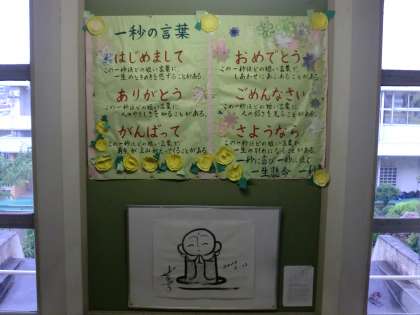 一秒の言葉
はじめまして
この一秒ほどの短い言葉に
一生のときめきを感ずることがある。
ありがとう
この一秒ほどの短い言葉に
人のやさしさを知ることがある。
がんばって
この一秒ほどの短い言葉で
勇気がよみがえってくることがある。
おめでとう
この一秒ほどの短い言葉に
しあわせにあふれることがある。
ごめんなさい
この一秒ほどの短い言葉に
人の弱さを見ることがある。
さようなら
この一秒ほどの短い言葉が
一生の別れになるときがある。
一秒に喜び 一秒に泣く
一生懸命 一秒